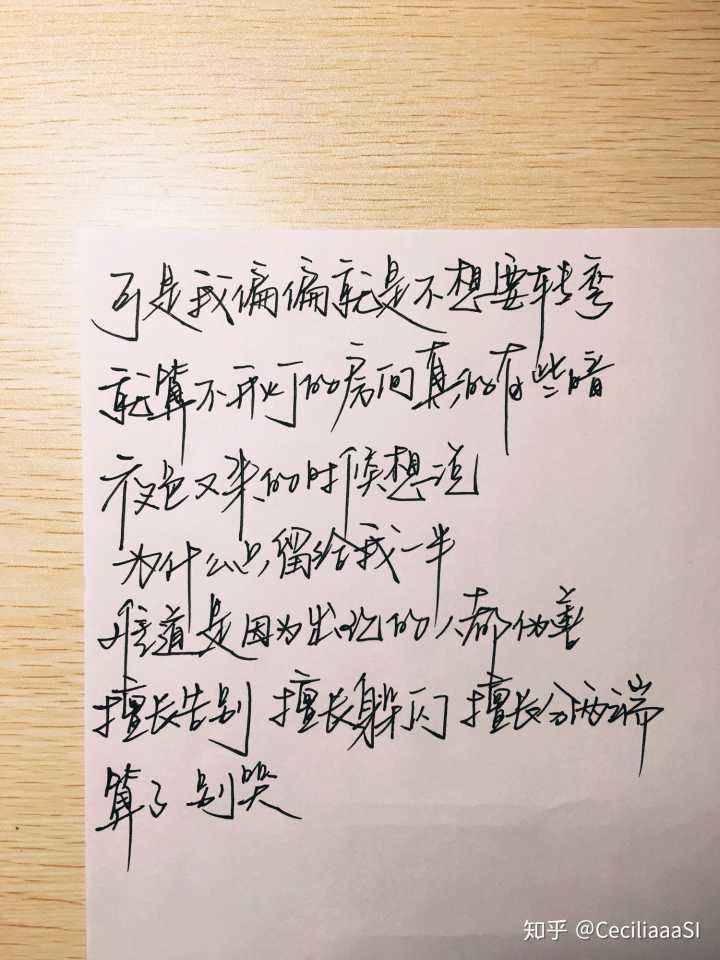 可是我偏偏就是不想要转弯
就算不开灯的房间真的有些暗
夜色又来的时候想说
为什么只留给我一半
难道是因为出现的人都伪善
擅长告别 擅长躲闪 擅长分两端
算了 别哭
知乎 @CeciliaaaSI